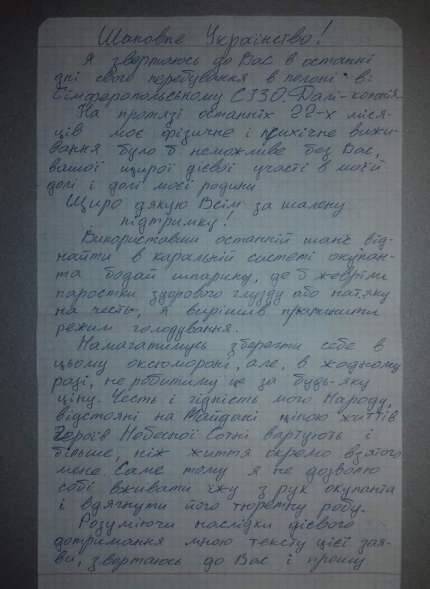 Шановне Українство!
Я звертаюсь до Вас в останні
дні свого перебування в полоні в
Сімферопольському СІЗО. Далі-колонія.
На протязі останніх 22-х міся-
ців моє фізичне і психічне вижи-
вання було б неможливе без Вас,
вашої щирої дієвої участі в моїй
долі і долі моєї родини.
Щиро дякую Всім за шалену
підтримку!
Використавши останній шанс від-
найти в каральній системі окупан-
та бодай шпарину, де б жевріли
паростки здорового глузду або натяку
на честь, я вирішив припинити
режим голодування.
Намагатимусь зберегти себе в
цьому оксюмороні, але, в жодному
разі, не робитиму це за будь-яку
ціну. Честь і гідність мого Народу,
відстояні на Майдані ціною життів
Героїв Небесної Сотні вартують і
більше, ніж життя окремо взятого
мене. Саме тому я не дозволю
собі вживати їжу з рук окупанта
і вдягнути його тюремну робу.
Розуміючи наслідки дієвого
дотримання мною тексту цієї зая-
ви, звертаюсь до Вас і прошу